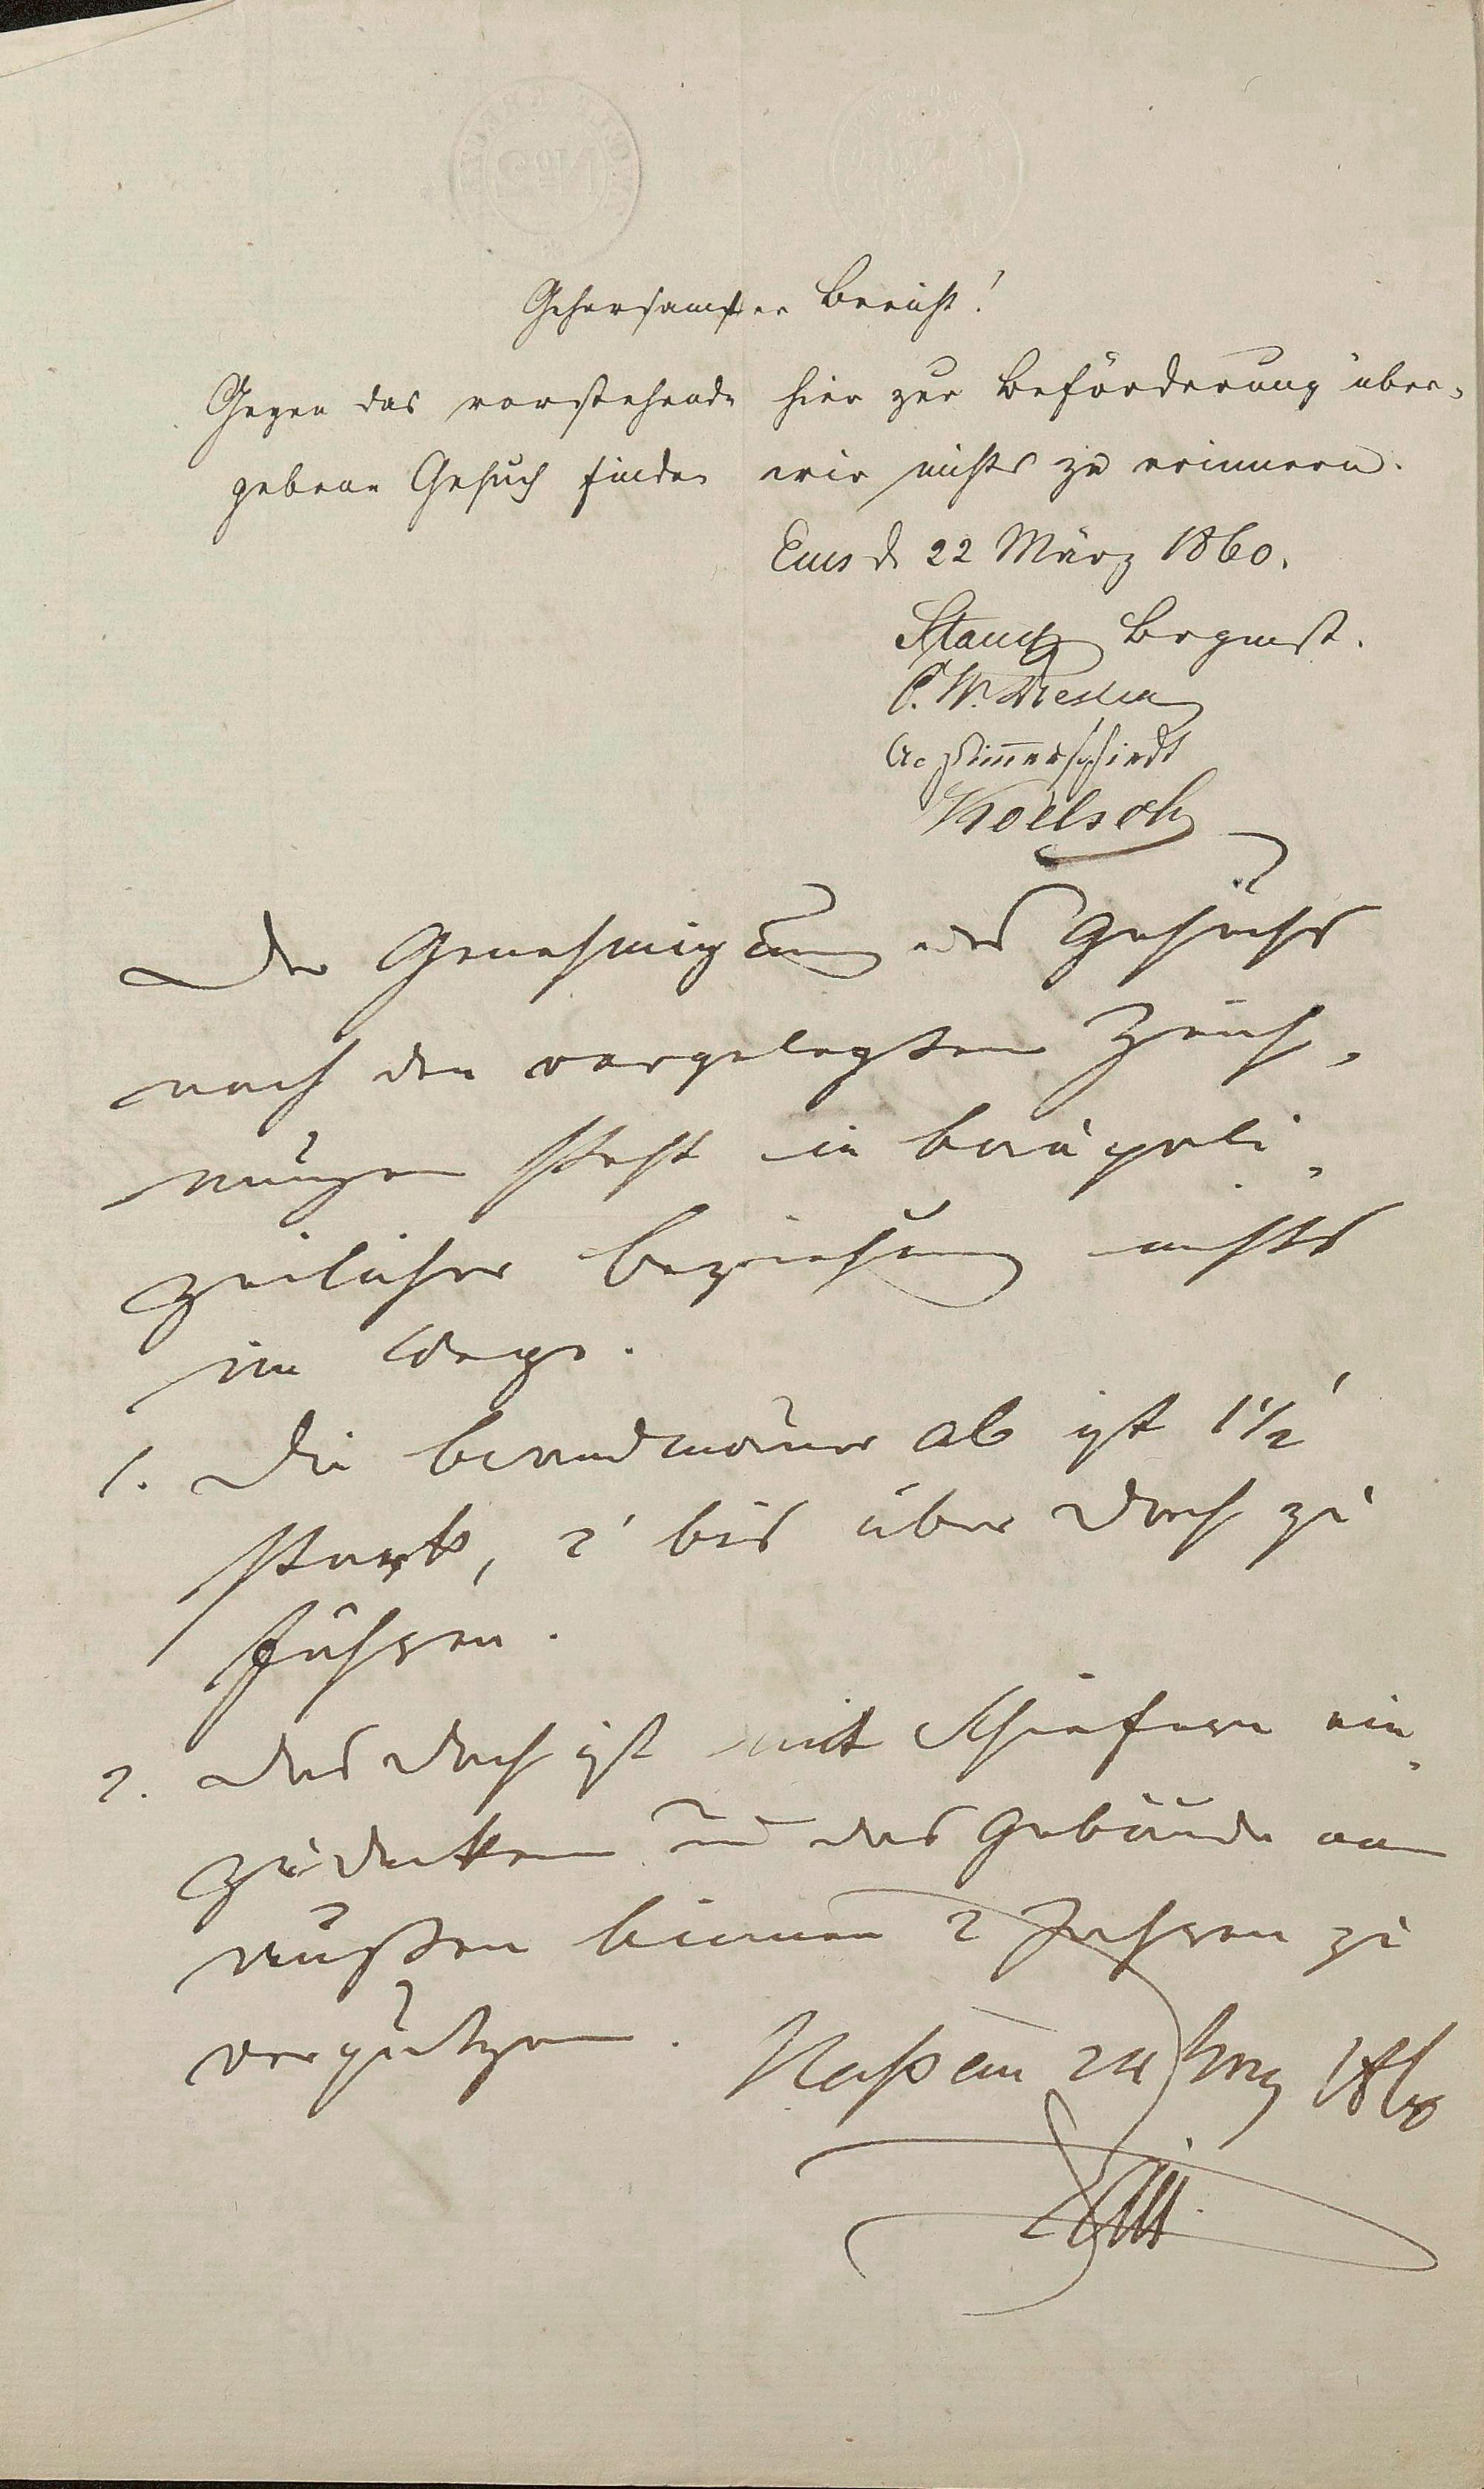 Gehorsamster Bericht!
Gegen das vorstehende hier zur Beförderung über-
gebene Gesuch finden wir nichts zu erinnern.
Ems d. 22 März 1860.
Stauch Brgmst.
C. W.
A. Zimmerschiedt
Koelsch
Der Genehmigung des Gesuchs
nach den vorgelegten Zeich-
nungen steht in baupoli-
zeilicher Beziehung nichts
im Wege.
1. Die Brandmauer ab ist 1½'
stark, 2' bis über Dach zu
führen.
2. Das Dach ist mit Schiefern ein-
zudecken und das Gebäude von
außen binnen 2 Jahren zu
verputzen.
Naßau 24 März 1860